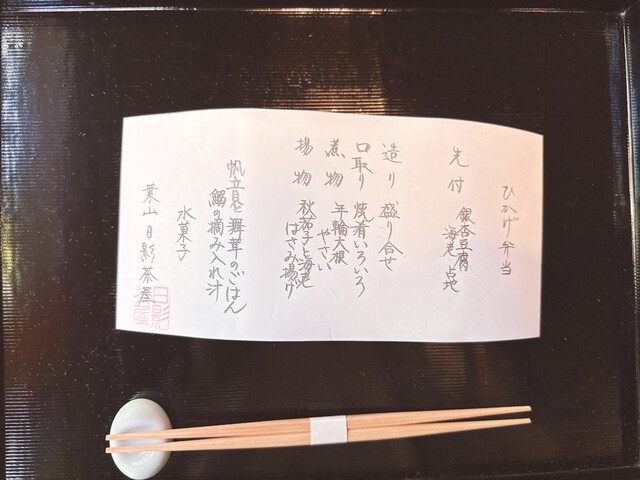 ひかげ弁当
先付 銀杏豆腐
海老 占地
造り 盛り合せ
口取り 焼肴いろいろ
煮物 年輪大根
やさい
揚物 秋茄子と海老
はさみ揚げ
帆立貝と舞茸のごはん
鰯の摘み入れ汁
水菓子
葉山 日影茶屋
日影